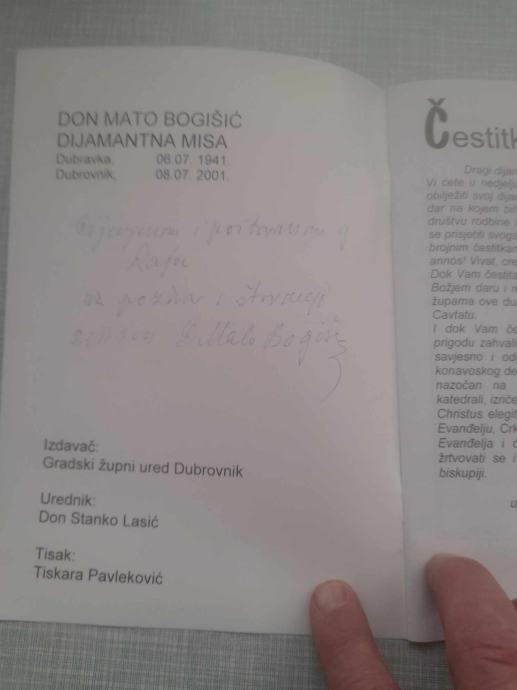 DON MATO BOGIŠIĆ
DIJAMANTNA MISA
Dubravka, 06.07. 1941.
Dubrovnik, 08.07. 2001.
i
uz pozdrav i
D. Mato Bogišić
Izdavač:
Gradski župni ured Dubrovnik
Urednik:
Don Stanko Lasić
Tisak:
Tiskara Pavleković
Čestitk
Dragi dijan
Vi ćete u nedjelju
obilježiti svoj dijan
dar na kojem bih
društvu rodbine i
se prisjetiti svoga
brojnim čestitkan
annos! Vivat, cre
Dok Vam čestita
Božjem daru i n
župama ove du
Cavtatu.
I dok Vam če
prigodu zahvali
savjesno i odg
konavoskog de
nazočan na
katedrali, izriče
Christus elegit
Evanđelju, Crk
Evanđelja i c
žrtvovati se i
biskupiji.
u